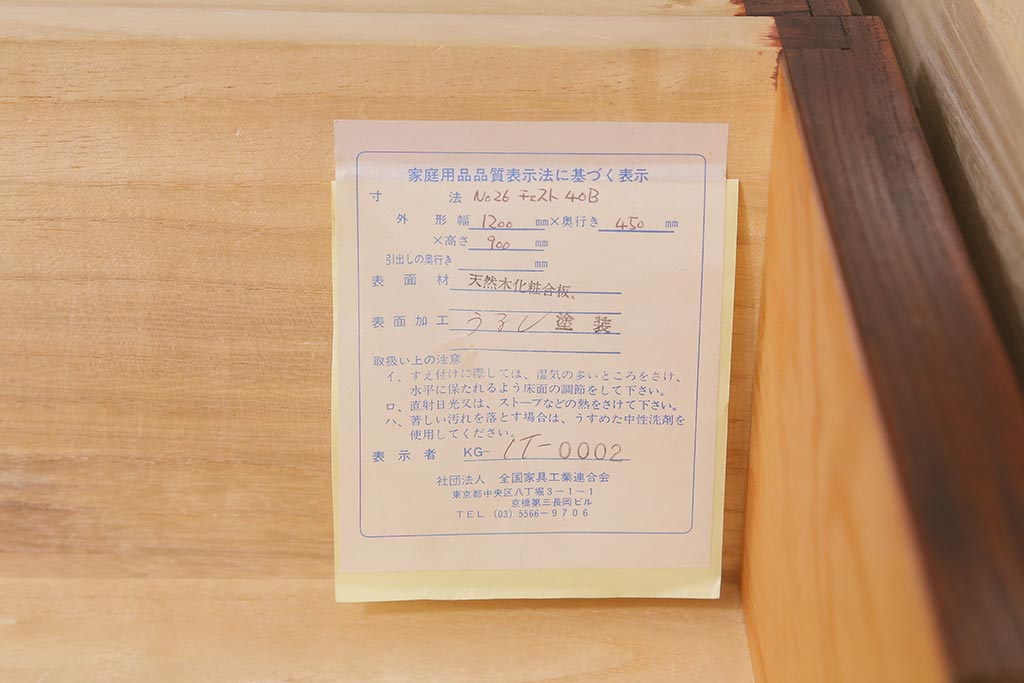 家庭用品品質表示法に基づく表示
寸法 No26 チェスト 40B
外形幅 1200 mm×奥行き 450 mm
×高さ 900 mm
引出しの奥行き mm
表面材 天然木化粧合板、
表面加工 うるし塗装
取扱い上の注意
イ、すえ付けに際しては、湿気の多いところをさけ、
水平に保たれるよう床面の調節をして下さい。
ロ、直射日光又は、ストーブなどの熱をさけて下さい。
ハ、著しい汚れを落とす場合は、うすめた中性洗剤を
使用してください。
表示者 KG-IT-0002
社団法人 全国家具工業連合会
東京都中央区八丁堀3-1-1
京橋第三長岡ビル
TEL (03) 5566-9706